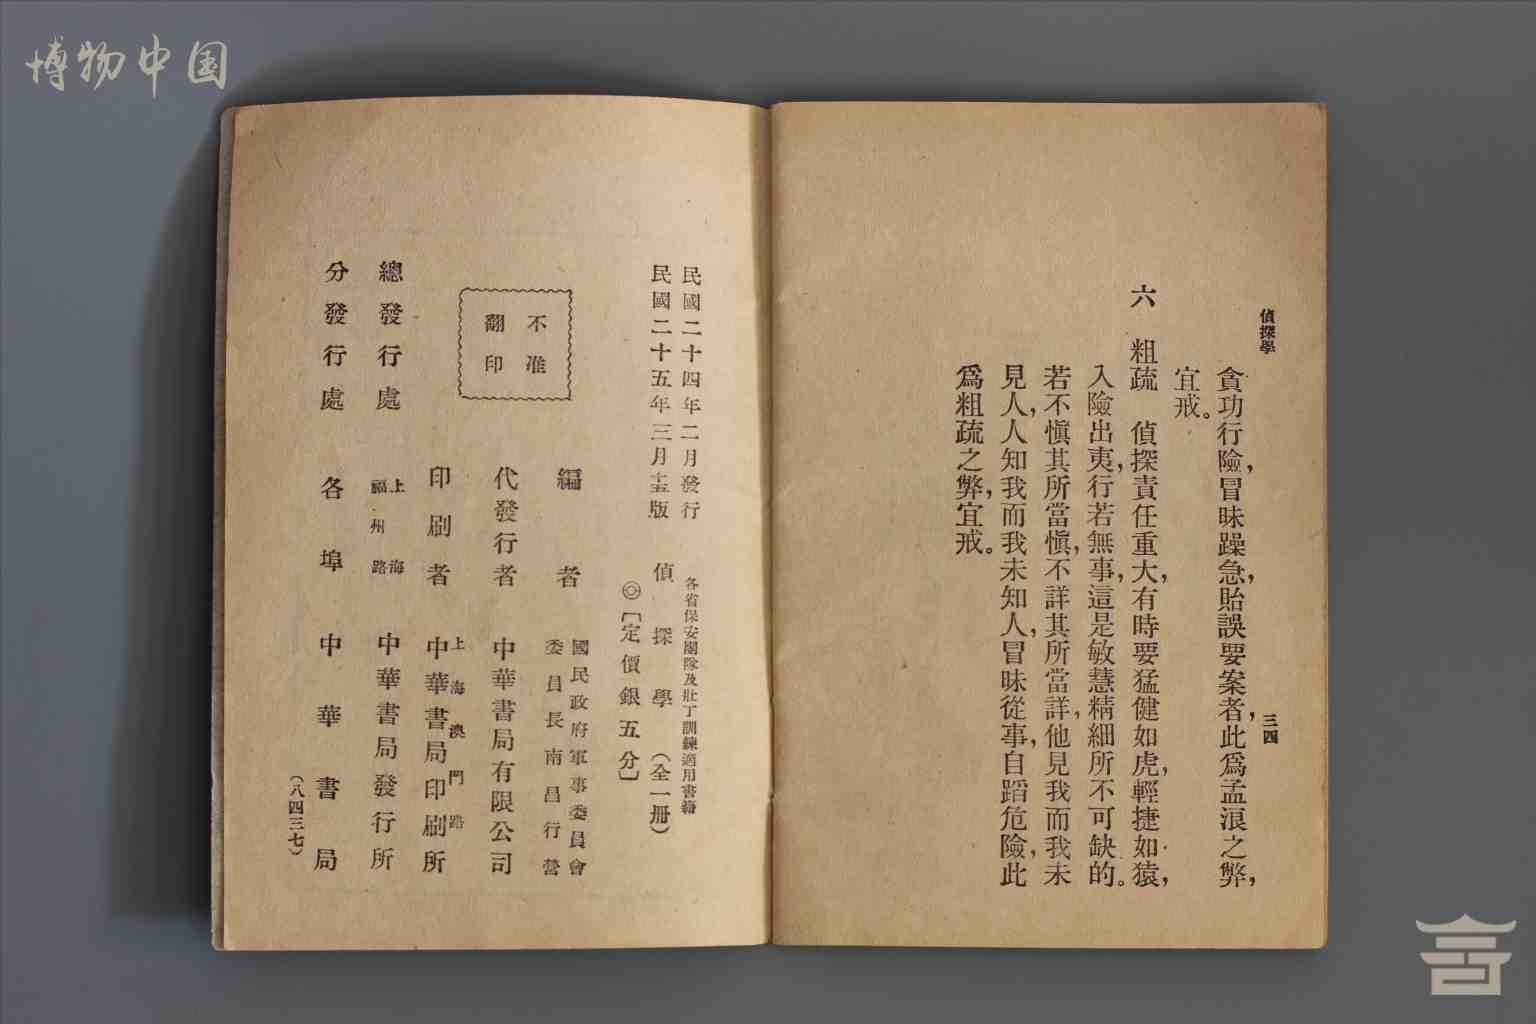 博物中国
偵探學
三四
貪功行險，冒昧躁急，貽誤要案者，此爲孟浪之弊，
宜戒。
六　粗疏　偵探責任重大，有時要猛健如虎，輕捷如猿，
入險出夷，行若無事，這是敏慧精細所不可缺的。
若不愼其所當愼，不詳其所當詳，他見我而我未
見人，人知我而我未知人，冒昧從事，自蹈危險，此
爲粗疏之弊，宜戒。
民國二十四年二月發行
民國二十五年三月十五版
各省保安團隊及壯丁訓練適用書籍
偵探學（全一册）
◎〔定價銀五分〕
不准
翻印
編者
國民政府軍事委員會
委員長南昌行營
代發行者　中華書局有限公司
印刷者
上海澳門路
中華書局印刷所
總發行處
上海
福州路
中華書局發行所
分發行處　各埠中華書局
（八四三七）